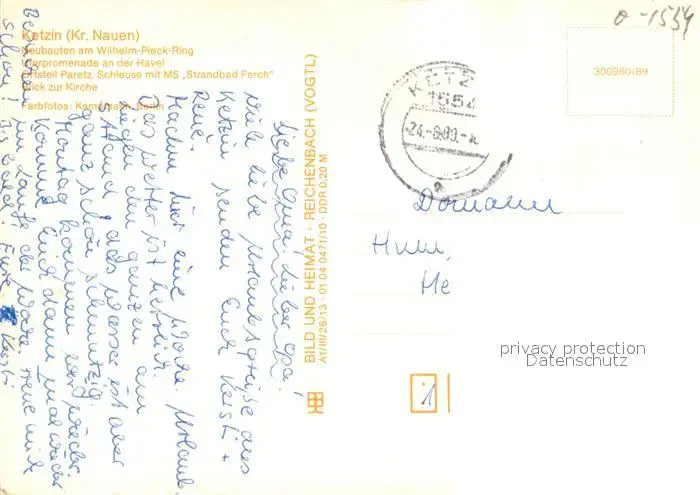 Ketzin (Kr. Nauen)
Neubauten am Wilhelm-Pieck-Ring
Uferpromenade an der Havel
Ortsteil Paretz, Schleuse mit MS „Strandbad Ferch"
Blick zur Kirche
Farbfotos: Kampmann, Berlin
Liebe Oma! Lieber Opa!
Viele liebe Urlaubsgrüße aus
Ketzin senden Euch Kersti +
René.
Machen hier eine Woche Urlaub.
Das Wetter ist herrlich.
Liegen den ganzen am
Strand, das Wasser ist aber
ganz schön schmutzig.
Montag kommen wir wieder.
Komme Euch dann mal wieder
im Laufe der Woche
schon! Bis bald! Eure Kersti
BILD UND HEIMAT · REICHENBACH (VOGTL)
A1/III/26/13 · 01 04 0471/10 · DDR 0,20 M
o-1554
300960/89
KETZ
1554
24.-8.89.-
Domann
He
1
privacy protection
Datenschutz